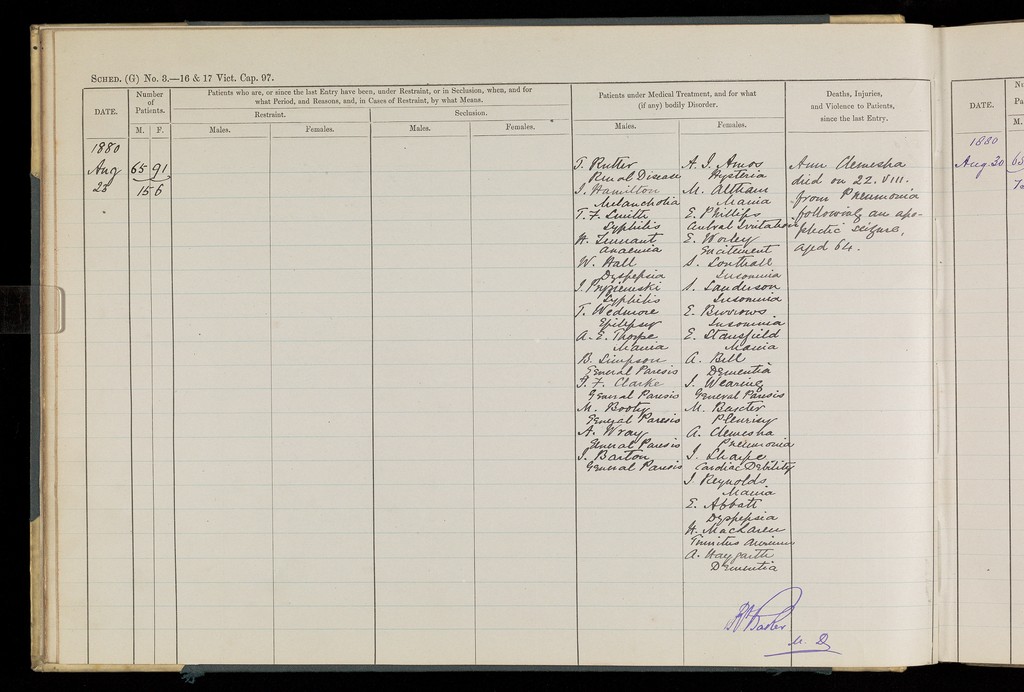 SCHED. (G) No. 3.—16 & 17 Vict. Cap. 97.
DATE.
Number of Patients.
M. F.
Patients who are, or since the last Entry have been, under Restraint, or in Seclusion, when, and for
what Period, and Reasons, and, in Cases of Restraint, by what Means.
Restraint.
Seclusion.
Males.
Females.
Males.
Females.
Patients under Medical Treatment, and for what
(if any) bodily Disorder.
Males.
Females.
Deaths, Injuries,
and Violence to Patients,
since the last Entry.
1880
Aug 23
65 91
156
T. Rutter
Renal Disease
J. Hamilton
Melancholia
T. F. Smith
Syphilis
H. Tennant
Anaemia
W. Hall
Dyspepsia
J. Pryziemski
Syphilis
T. Wedmore
Epilepsy
A. E. Thorpe
Mania
B. Simpson
General Paresis
J. F. Clarke
General Paresis
M. Booty
General Paresis
A. Wray
General Paresis
J. Barton
General Paresis
A. J. Amos
Hysteria
M. Altham
Mania
E. Phillips
Central Irritation
E. Worley
Excitement
S. Southall
Insomnia
S. Sanderson
Insomnia
E. Burrows
Insomnia
E. Stansfield
Mania
A. Bell
Dementia
J. Wearing
General Paresis
M. Baxter
Pleurisy
A. Clemesha
Pneumonia
J. Sharpe
Cardiac Debility
J. Reynolds
Mania
E. Abbott
Dyspepsia
H. MacLaren
Tinnitus Aurium
A. Haygarth
Dementia
Ann Clemesha
died on 22. VIII.
from Pneumonia
following an apo-
plectic seizure,
aged 64.
Baker
M. D
DATE.
M.
1880
Aug. 30